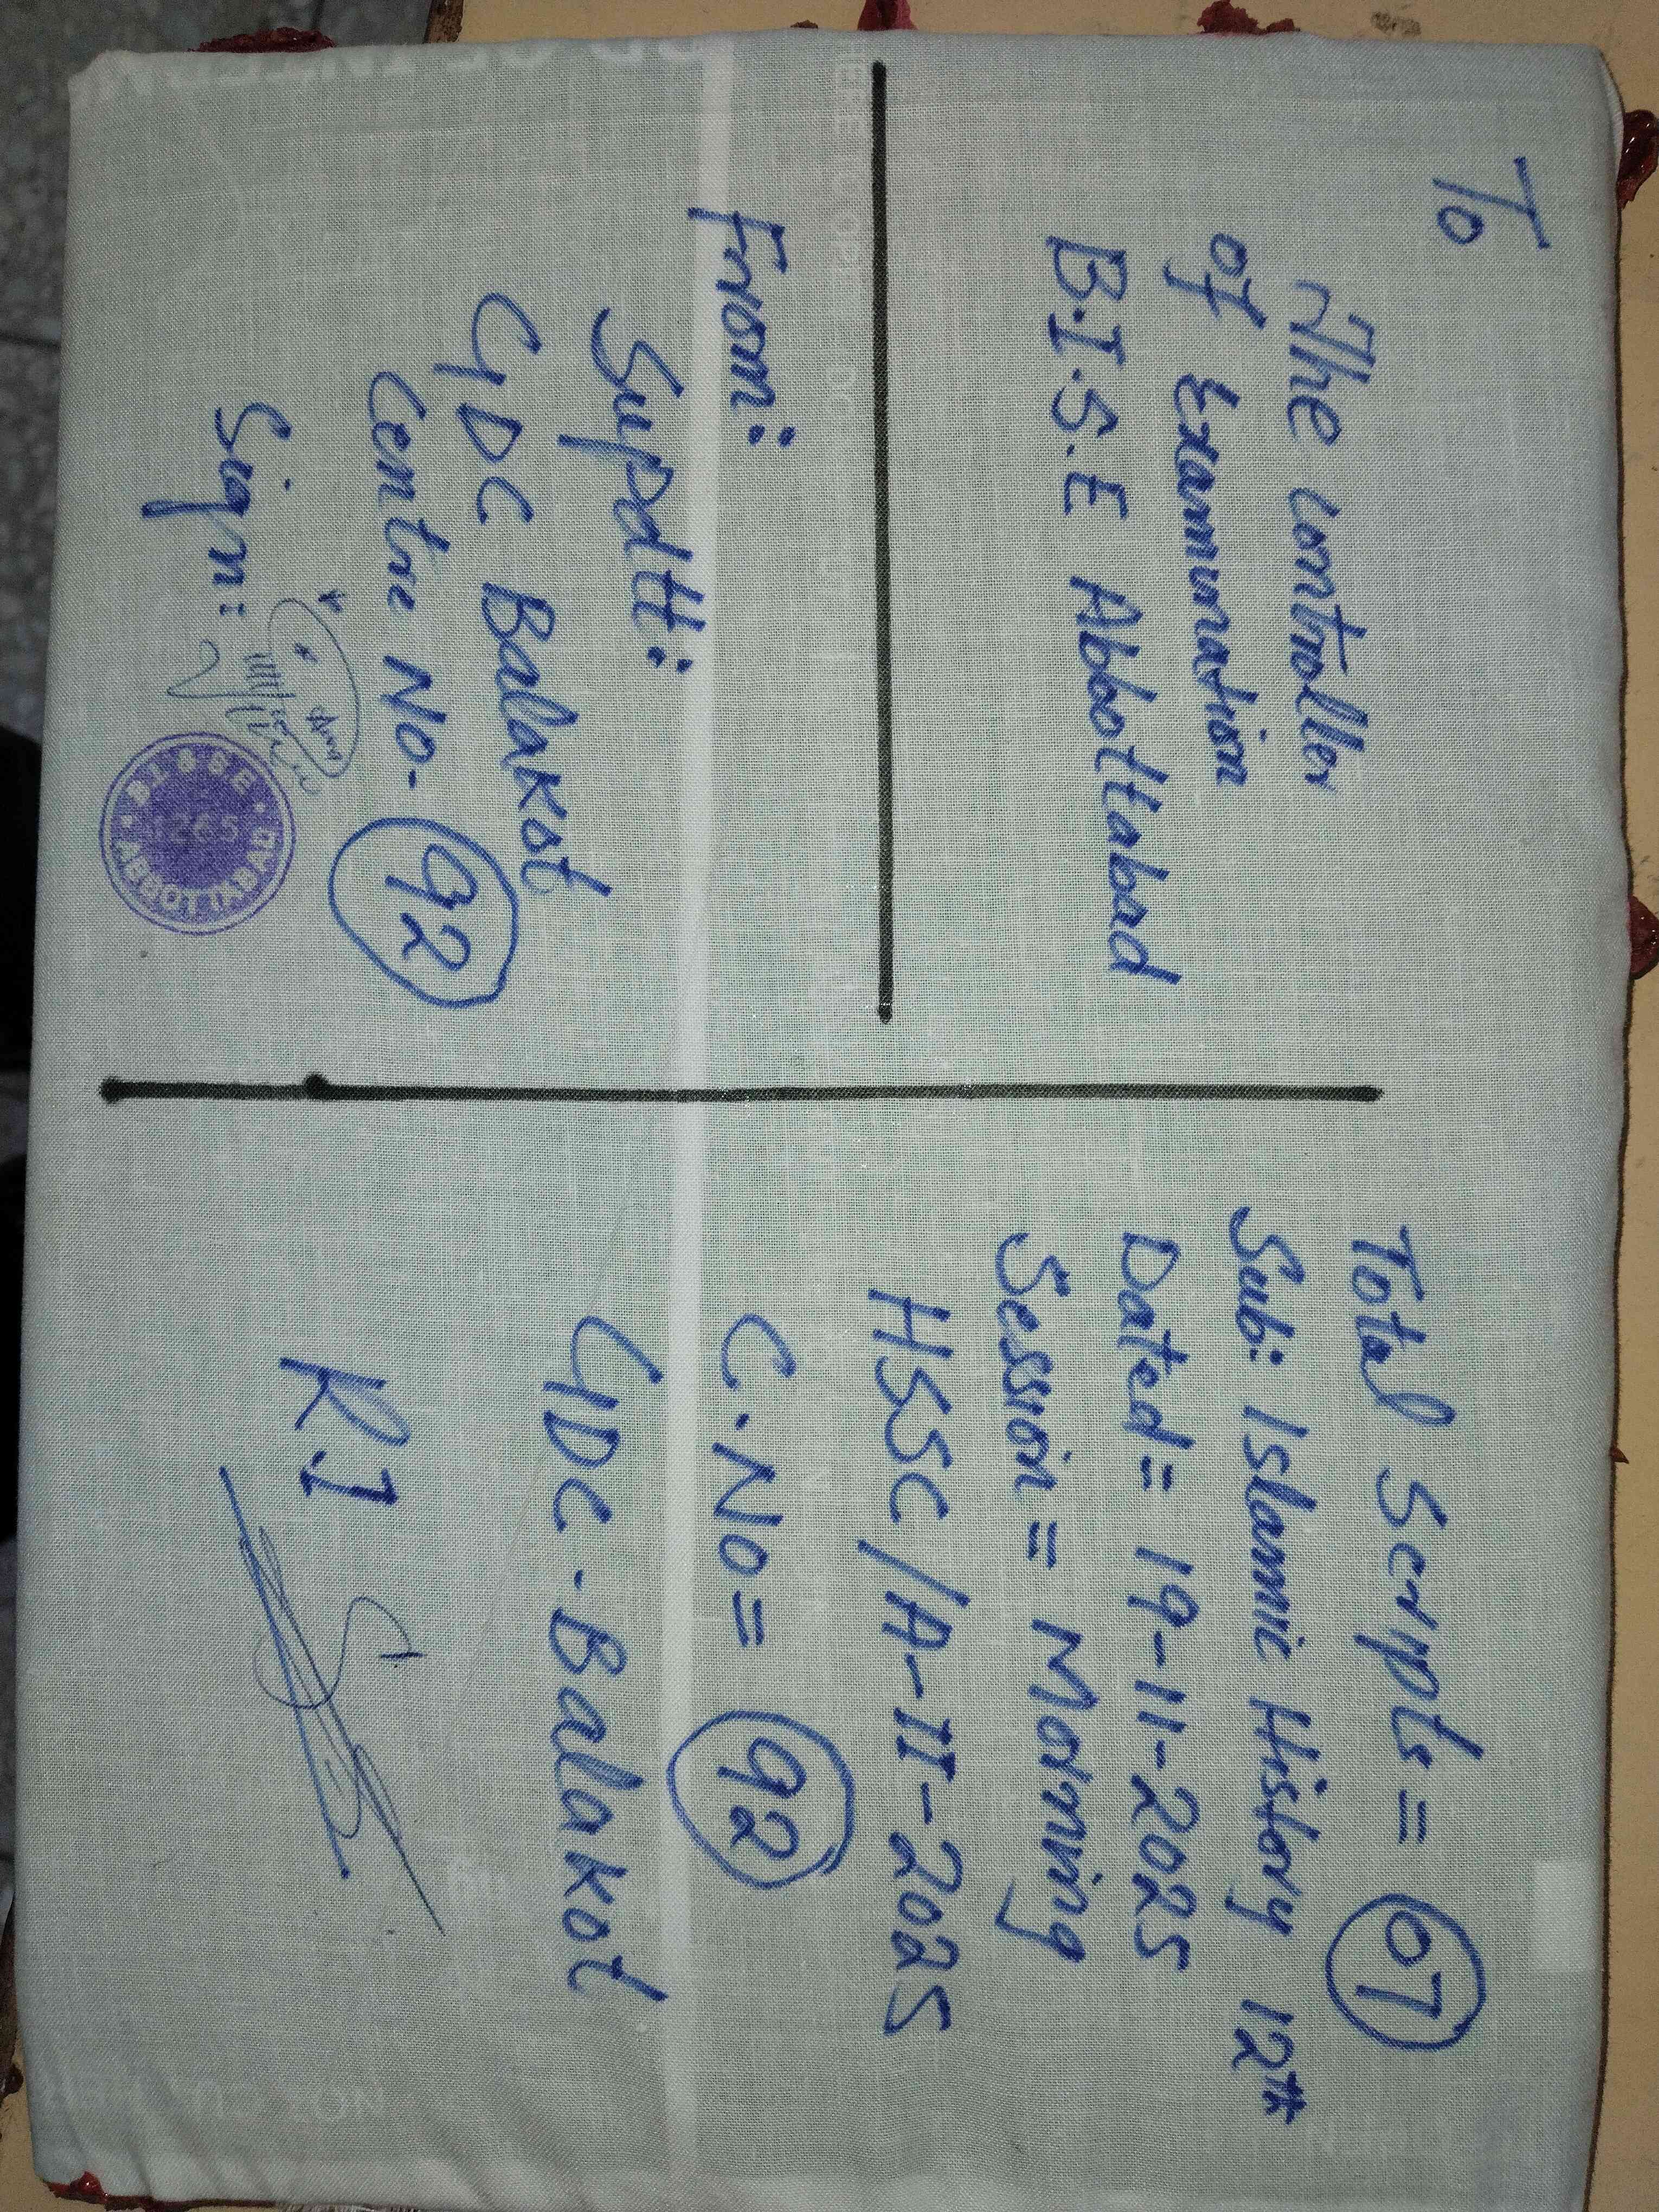 To
The Controller
of Examination
B.I.S.E Abbottabad
From:
Supdtt:
GDC Balakot
Centre No- 92
Sign:
BISE
ABBOTTABAD
Total Scripts = 07
Sub: Islamic History 12th
Dated = 19-11-2025
Session = Morning
HSSC/A-II-2025
C.No = 92
GDC-Balakot
R.I